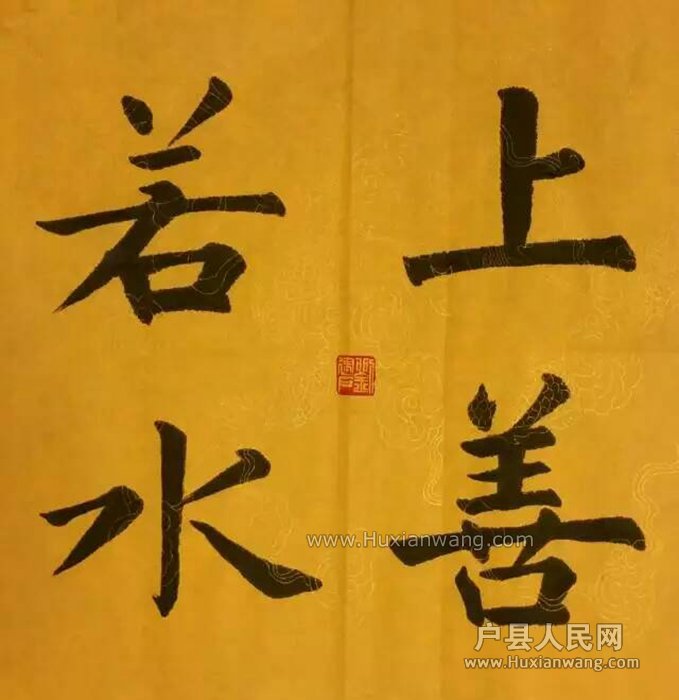 上善
若水
www.Huxianwang.com
户县人民网
www.Huxianwang.com